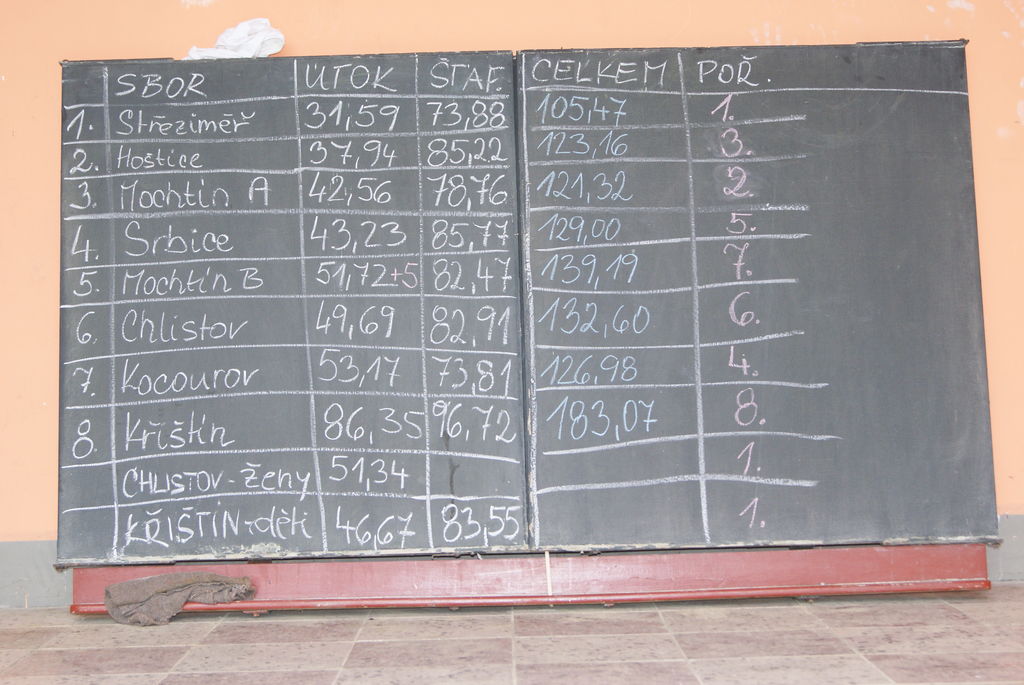 SBOR ÚTOK ŠTAF. CELKEM POŘ.
1. Střeziměř 31,59 73,88 105,47 1.
2. Hoštice 37,94 85,22 123,16 3.
3. Mochtín A 42,56 78,76 121,32 2.
4. Srbice 43,23 85,77 129,00 5.
5. Mochtín B 51,72+5 82,47 139,19 7.
6. Chlistov 49,69 82,91 132,60 6.
7. Kocourov 53,17 73,81 126,98 4.
8. Křištín 86,35 96,72 183,07 8.
CHLISTOV-ženy 51,34 1.
KŘIŠTÍN-děti 46,67 83,55 1.